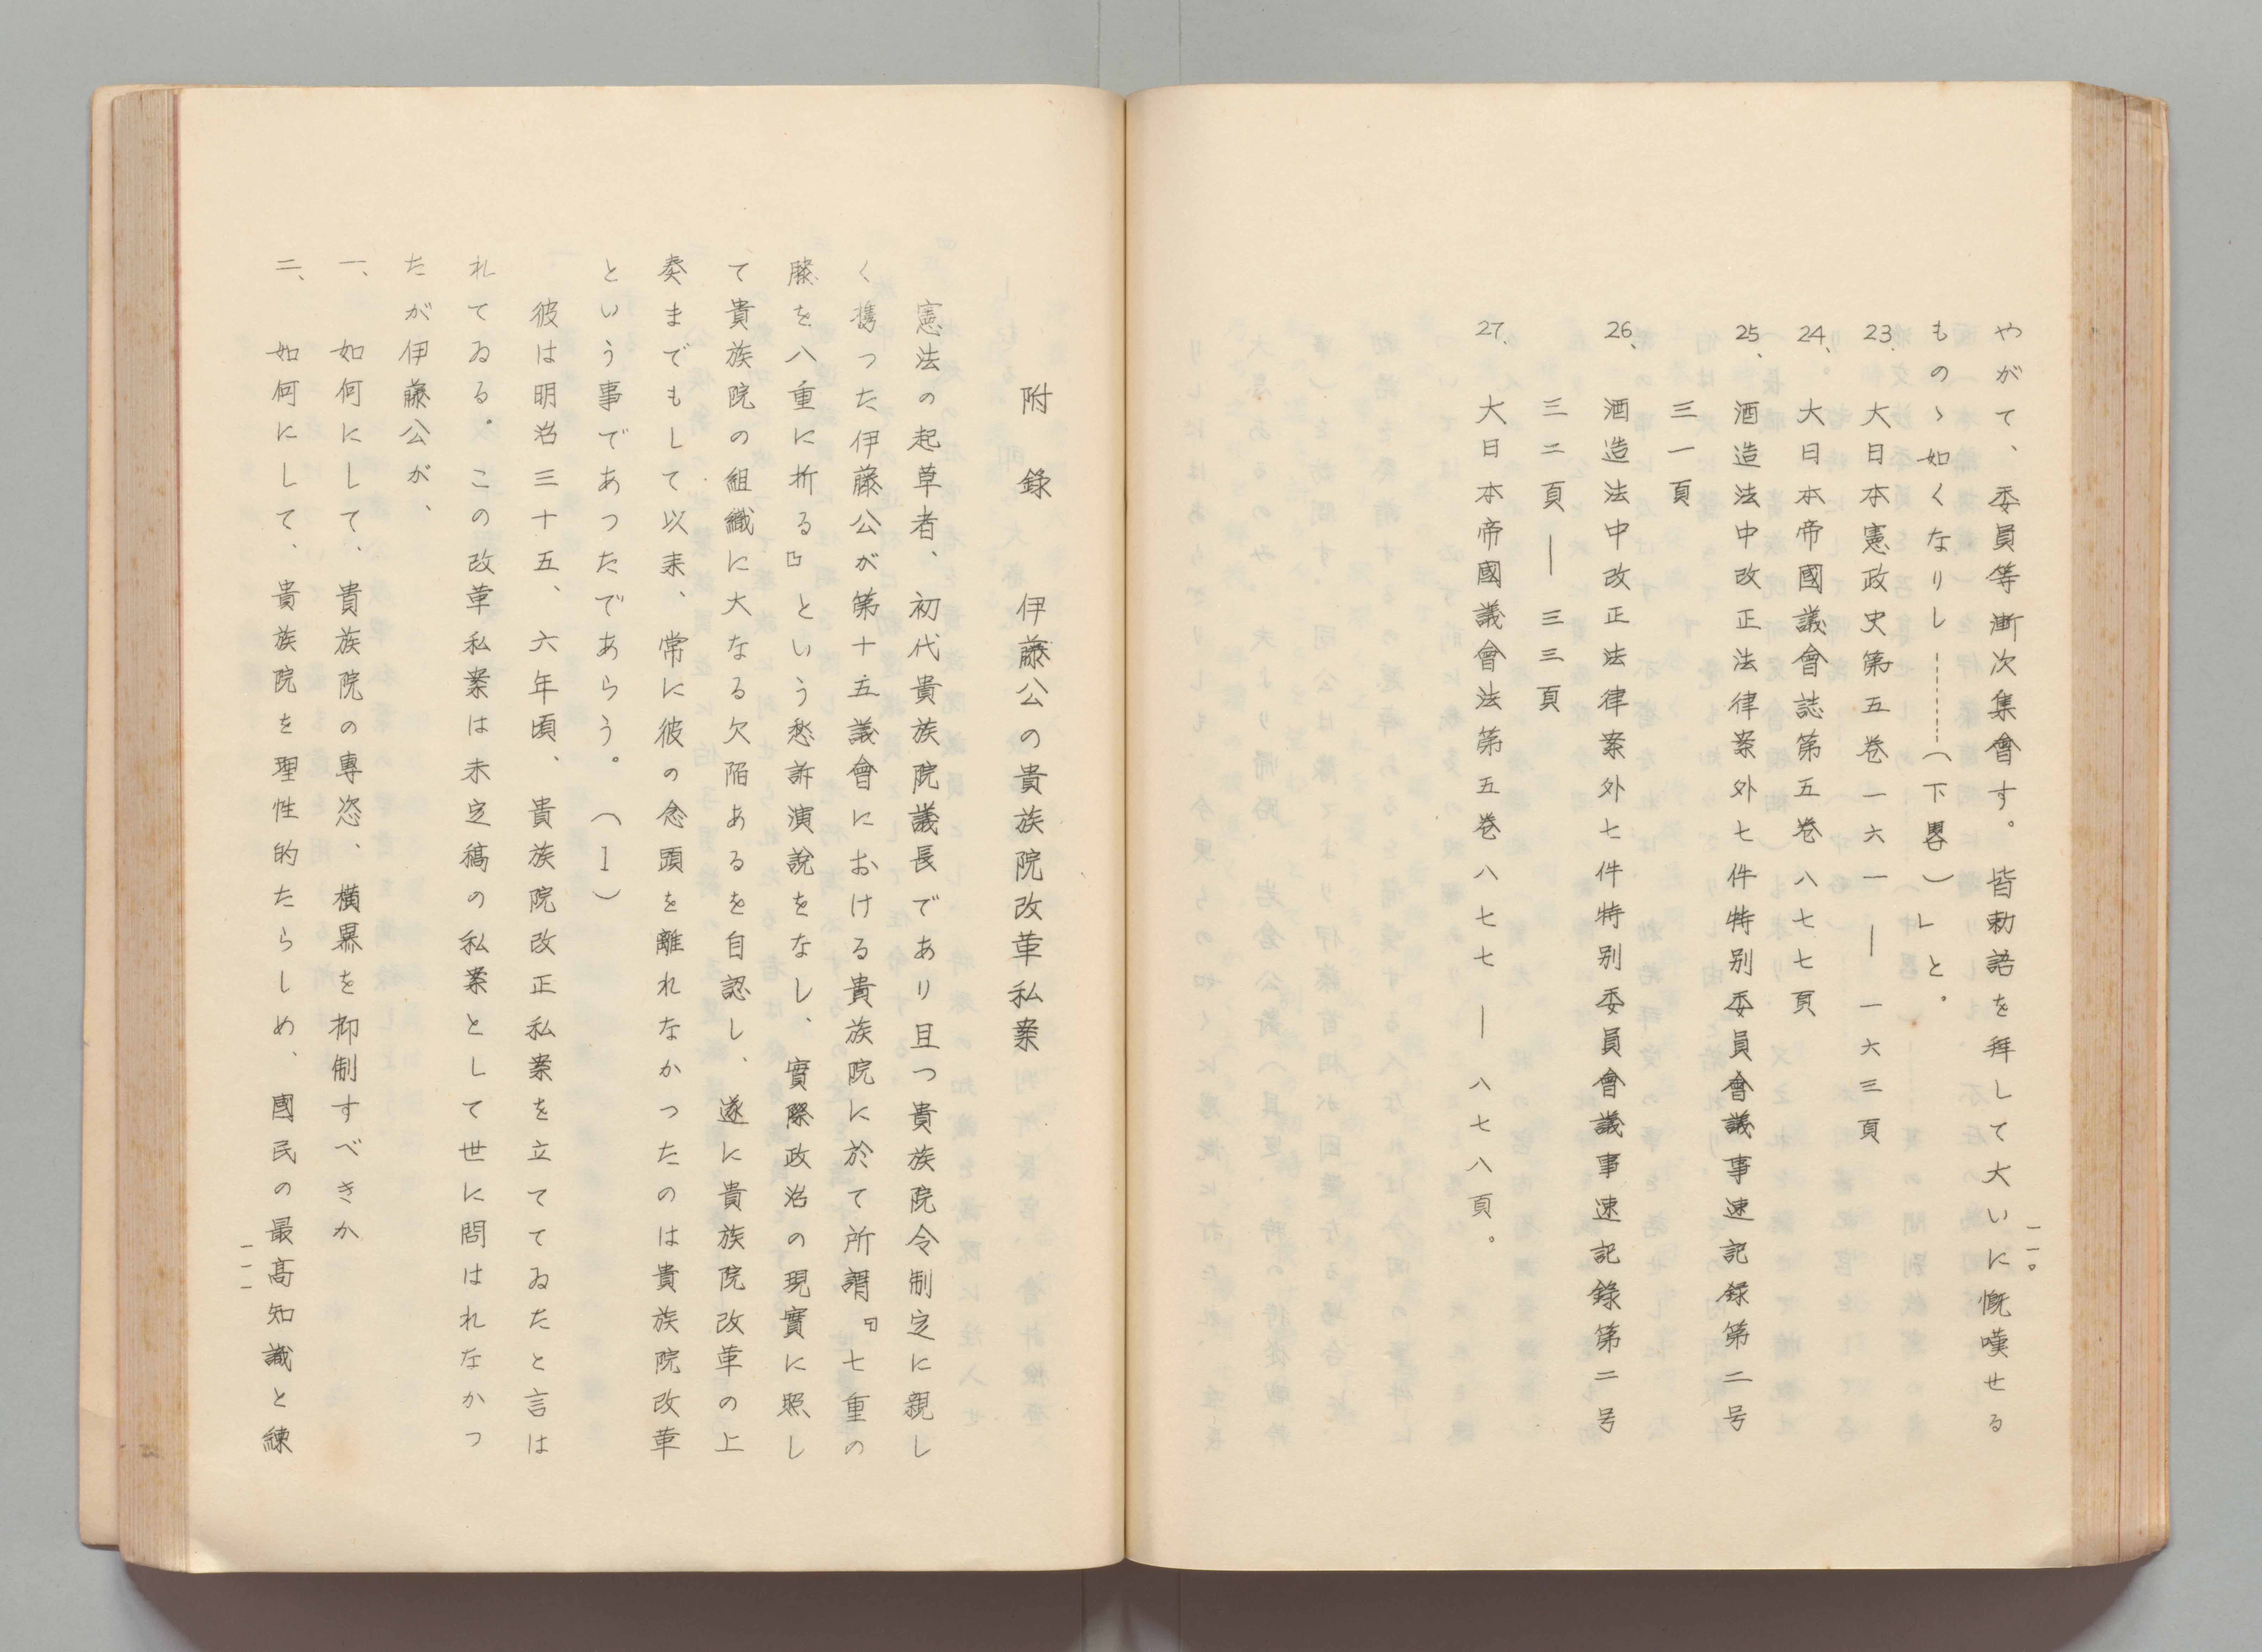 やがて、委員等漸次集會す。皆勅語を拜して大いに慨嘆せる
ものゝ如くなりし………（下畧）」と。
23、大日本憲政史第五巻一六一ー一六三頁
24、大日本帝國議會誌第五巻八七七頁
25、酒造法中改正法律案外七件特別委員會議事速記録第二号
三一頁
26、酒造法中改正法律案外七件特別委員會議事速記錄第二号
三二頁ー三三頁
27、大日本帝國議會法第五巻八七七ー八七八頁。
一一〇
附錄 伊藤公の貴族院改革私案
憲法の起草者、初代貴族院議長であり且つ貴族院令制定に親し
く携った伊藤公が第十五議會における貴族院に於て所謂『七重の
膝を八重に折る』という愁訴演說をなし、實際政治の現實に照し
て貴族院の組織に大なる欠陥あるを自認し、遂に貴族院改革の上
奏までもして以来、常に彼の念頭を離れなかったのは貴族院改革
という事であつたであらう。（１）
彼は明治三十五、六年頃、貴族院改正私案を立ててゐたと言は
れてゐる。この改革私案は未定稿の私案として世に問はれなかつ
たが伊藤公が、
一、如何にして、貴族院の專恣、橫暴を抑制すべきか
二、如何にして、貴族院を理性的たらしめ、國民の最高知識と練
一一一